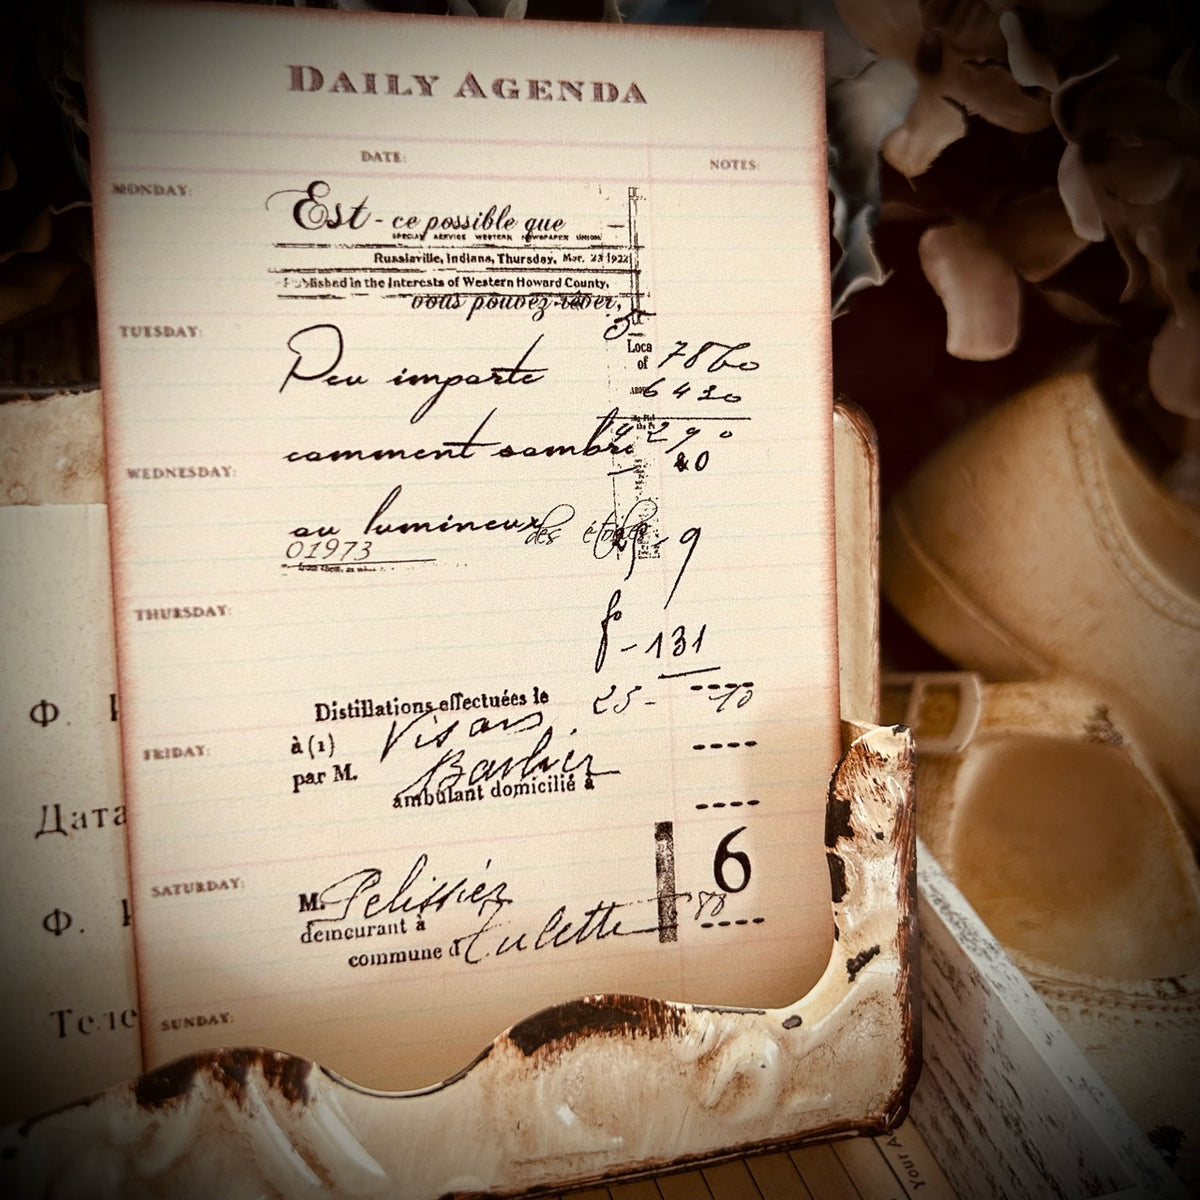 DAILY AGENDA
DATE:
NOTES:
MONDAY:
Est - ce possible que
SPECIAL SERVICE WESTERN NEWSPAPER UNION
Russiaville, Indiana, Thursday, Mar. 23 1922
Published in the Interests of Western Howard County,
vous pouvez rêver,
TUESDAY:
Peu importe
Loca
of
7860
6430
comment sombre
4290
40
WEDNESDAY:
ou lumineux
des étoiles
9
01973
THURSDAY:
f-131
Distillations effectuées le
25-
10
FRIDAY:
à (1)
par M. Barbier
ambulant domicilié à
6
SATURDAY:
M. Pelissier
88
demeurant à
commune d Tulette
SUNDAY:
Ф.
Дата
Ф.
Теле
Your A